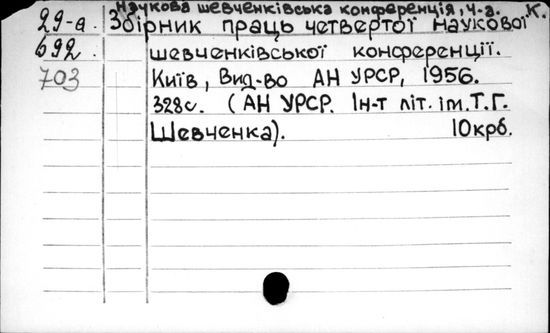 Наукова шевченківська конференція, 4-а. К.
29-а Збірник праць четвертої наукової
692 шевченківської конференції.
703 Київ, Вид-во АН УРСР, 1956.
328с. (АН УРСР. Ін-т літ. ім. Т.Г.
Шевченка). 10крб.